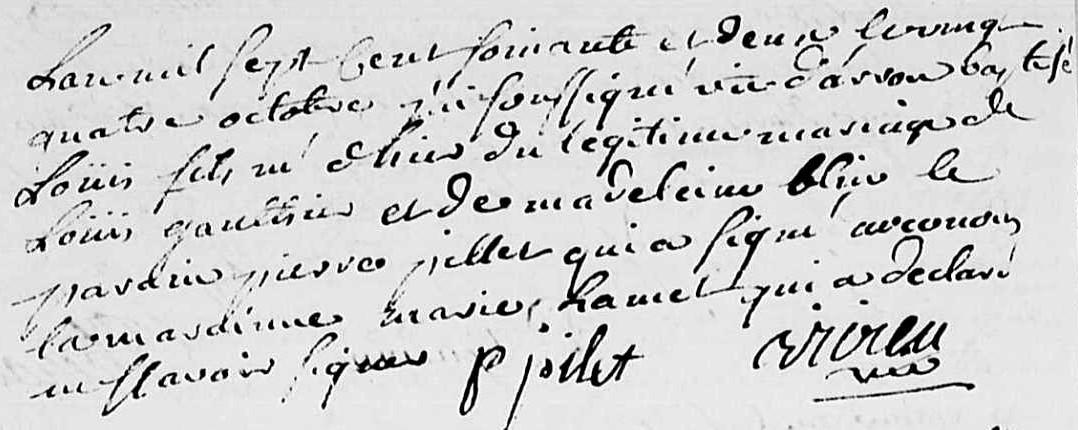 Lan mil sept cent soixante et deux le vingt
quatre octobre j'ai soussigné vic d'arrou baptisé
Loüis fils né d'hier du légitime mariage de
Loüis gaultier et de madeleine blin le
parain pierre pillet qui a signé avec nous
la maraine marie hamel qui a declaré
ne scavoir signer p pillet
vic